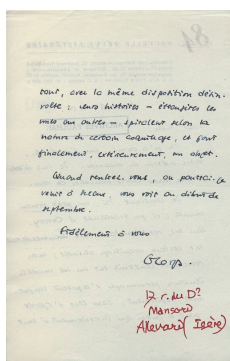 sont, avec la même disposition désin-
volte ; leurs histoires – étrangères les
unes aux autres –, spiralent selon la
nature du certain coquillage, et font
finalement, extérieurement, un objet.
Quand rentrez-vous, ou pourrai-je
venir à vous voir au début de
septembre.
Fidèlement à vous
Georges.
12 r. du Dr
Mansord
Allevard (Isère)